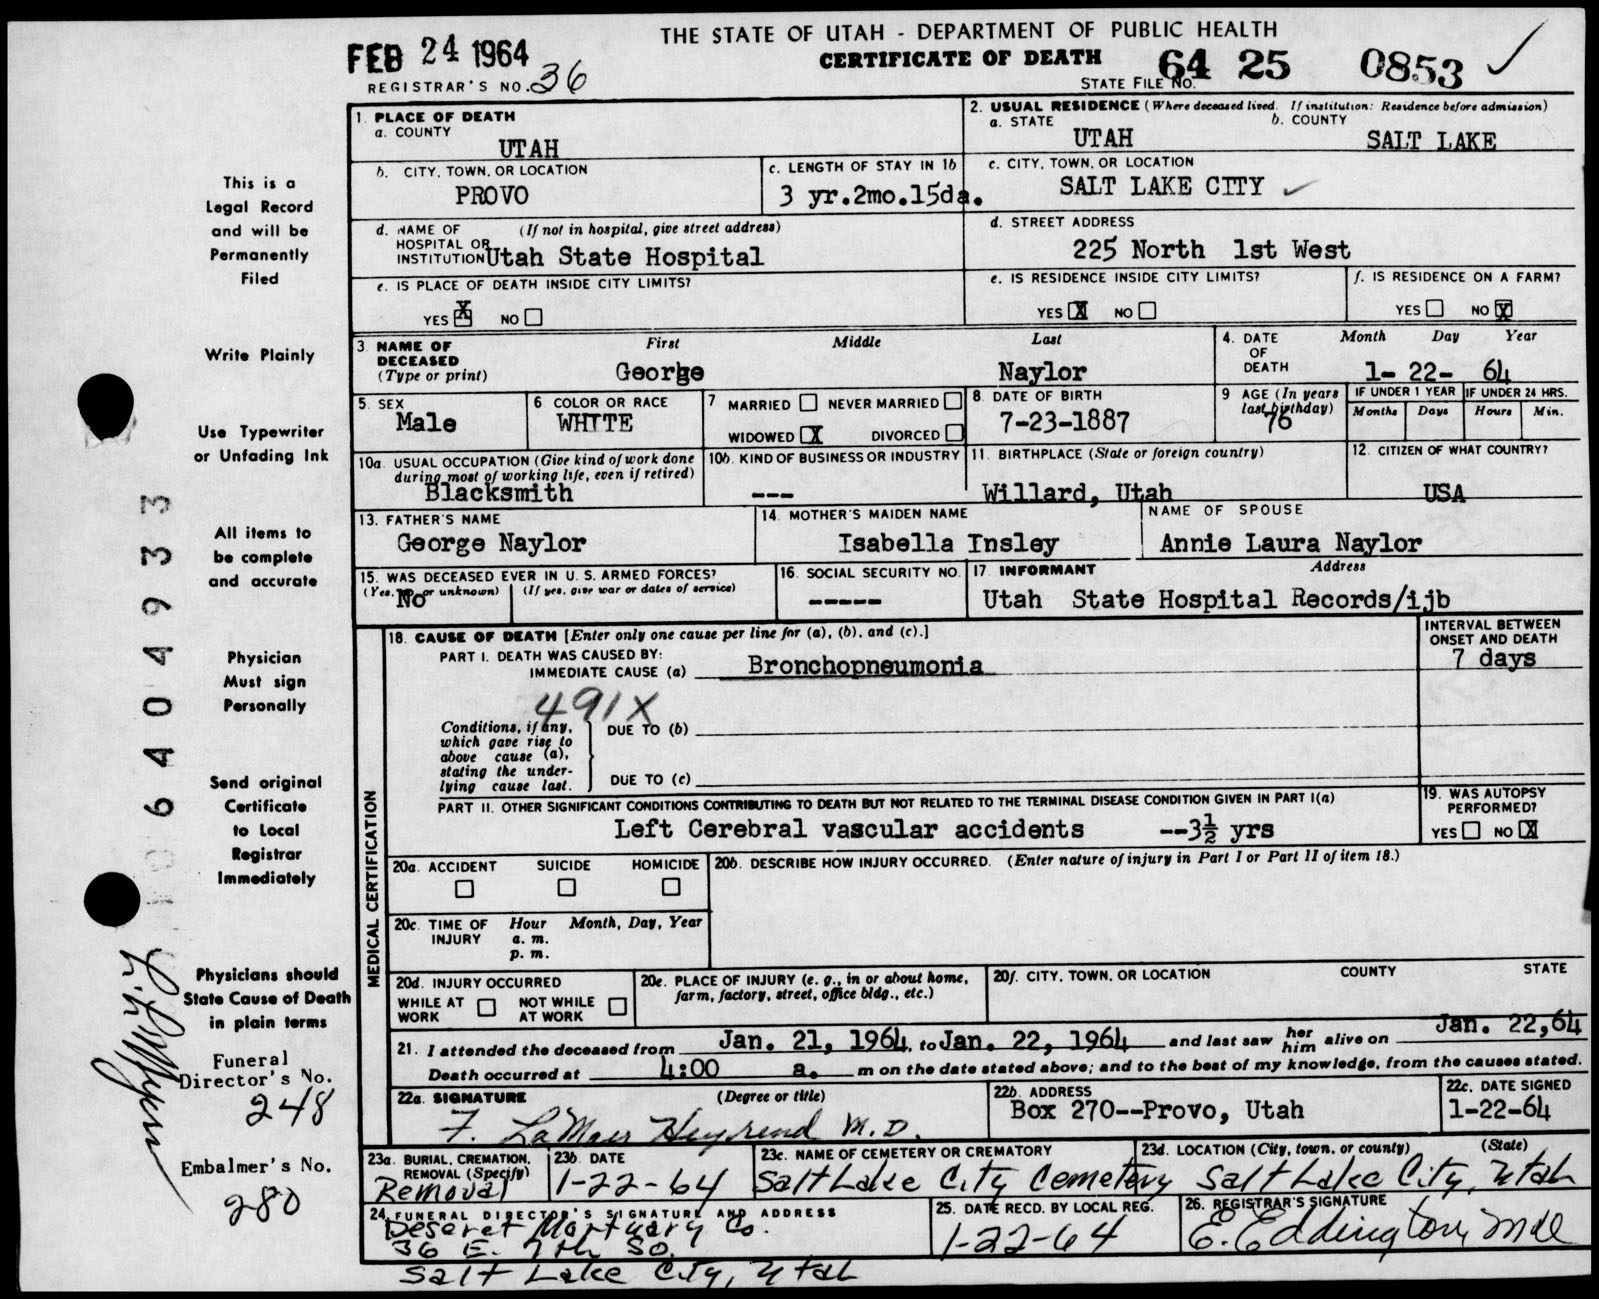 THE STATE OF UTAH - DEPARTMENT OF PUBLIC HEALTH
CERTIFICATE OF DEATH
FEB 24 1964
REGISTRAR'S NO. 36
STATE FILE NO. 64 25 0853
1. PLACE OF DEATH
a. COUNTY
UTAH
2. USUAL RESIDENCE (Where deceased lived. If institution: Residence before admission)
a. STATE
UTAH
b. COUNTY
SALT LAKE
b. CITY, TOWN, OR LOCATION
PROVO
c. LENGTH OF STAY IN 1b
3 yr.2mo.15da.
c. CITY, TOWN, OR LOCATION
SALT LAKE CITY
d. NAME OF HOSPITAL OR INSTITUTION (If not in hospital, give street address)
Utah State Hospital
d. STREET ADDRESS
225 North 1st West
e. IS PLACE OF DEATH INSIDE CITY LIMITS?
YES X NO
e. IS RESIDENCE INSIDE CITY LIMITS?
YES X NO
f. IS RESIDENCE ON A FARM?
YES NO X
3. NAME OF DECEASED (Type or print)
First Middle Last
George Naylor
4. DATE OF DEATH
Month Day Year
1- 22- 64
5. SEX
Male
6. COLOR OR RACE
WHITE
7. MARRIED NEVER MARRIED
WIDOWED X DIVORCED
8. DATE OF BIRTH
7-23-1887
9. AGE (In years last birthday)
76
IF UNDER 1 YEAR
Months Days
IF UNDER 24 HRS.
Hours Min.
10a. USUAL OCCUPATION (Give kind of work done during most of working life, even if retired)
Blacksmith
10b. KIND OF BUSINESS OR INDUSTRY
---
11. BIRTHPLACE (State or foreign country)
Willard, Utah
12. CITIZEN OF WHAT COUNTRY?
USA
13. FATHER'S NAME
George Naylor
14. MOTHER'S MAIDEN NAME
Isabella Insley
NAME OF SPOUSE
Annie Laura Naylor
15. WAS DECEASED EVER IN U.S. ARMED FORCES?
(Yes, no, or unknown) (If yes, give war or dates of service)
No
16. SOCIAL SECURITY NO.
-----
17. INFORMANT Address
Utah State Hospital Records/ijb
MEDICAL CERTIFICATION
18. CAUSE OF DEATH [Enter only one cause per line for (a), (b), and (c).]
INTERVAL BETWEEN ONSET AND DEATH
PART I. DEATH WAS CAUSED BY:
IMMEDIATE CAUSE (a) Bronchopneumonia
7 days
491X
Conditions, if any, which gave rise to above cause (a), stating the underlying cause last.
DUE TO (b)
DUE TO (c)
PART II. OTHER SIGNIFICANT CONDITIONS CONTRIBUTING TO DEATH BUT NOT RELATED TO THE TERMINAL DISEASE CONDITION GIVEN IN PART I(a)
Left Cerebral vascular accidents --3½ yrs
19. WAS AUTOPSY PERFORMED?
YES NO X
20a. ACCIDENT SUICIDE HOMICIDE
20b. DESCRIBE HOW INJURY OCCURRED. (Enter nature of injury in Part I or Part II of item 18.)
20c. TIME OF INJURY Hour Month, Day, Year
a. m.
p. m.
20d. INJURY OCCURRED
WHILE AT WORK NOT WHILE AT WORK
20e. PLACE OF INJURY (e. g., in or about home, farm, factory, street, office bldg., etc.)
20f. CITY, TOWN, OR LOCATION COUNTY STATE
21. I attended the deceased from Jan. 21, 1964, to Jan. 22, 1964 and last saw her him alive on Jan. 22,64
Death occurred at 4:00 a. m on the date stated above; and to the best of my knowledge, from the causes stated.
22a. SIGNATURE (Degree or title)
F. LaMar Heyrend M.D.
22b. ADDRESS
Box 270--Provo, Utah
22c. DATE SIGNED
1-22-64
23a. BURIAL, CREMATION, REMOVAL (Specify)
Removal
23b. DATE
1-22-64
23c. NAME OF CEMETERY OR CREMATORY
Salt Lake City Cemetery
23d. LOCATION (City, town, or county) (State)
Salt Lake City, Utah
24. FUNERAL DIRECTOR'S SIGNATURE AND ADDRESS
Deseret Mortuary Co.
36 E. 7th So.
Salt Lake City, Utah
25. DATE RECD. BY LOCAL REG.
1-22-64
26. REGISTRAR'S SIGNATURE
E. Eddington, Mde
This is a
Legal Record
and will be
Permanently
Filed
Write Plainly
Use Typewriter
or Unfading Ink
All items to
be complete
and accurate
Physician
Must sign
Personally
Send original
Certificate
to Local
Registrar
Immediately
Physicians should
State Cause of Death
in plain terms
Funeral
Director's No.
248
Embalmer's No.
280
0 6 4 0 4 9 3 3